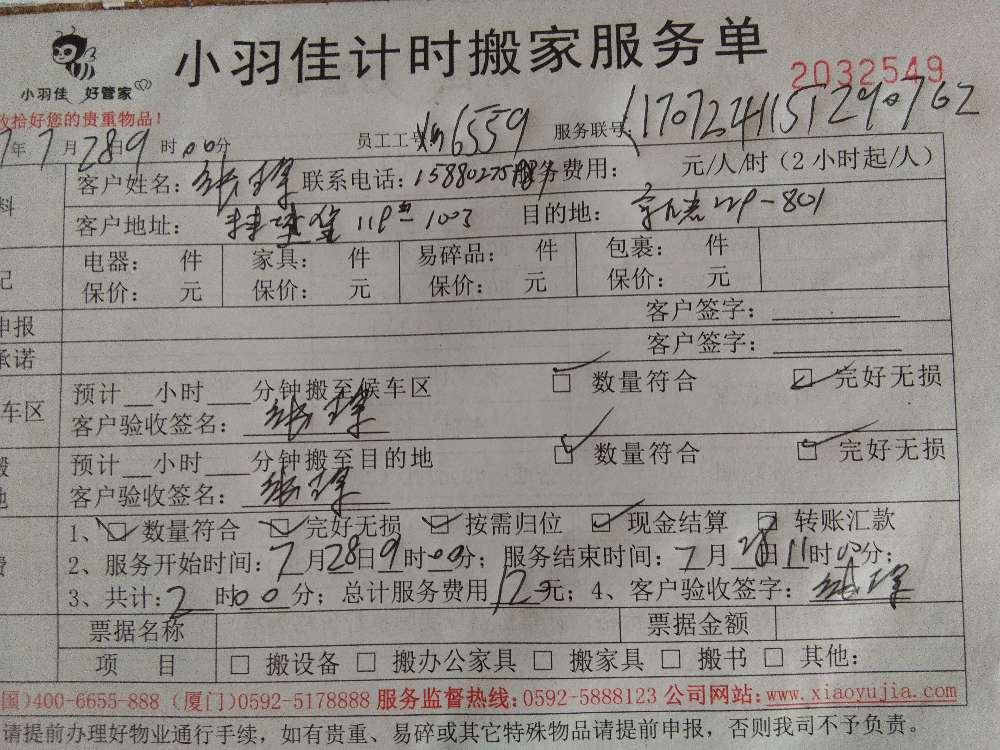 小羽佳计时搬家服务单
2032549
小羽佳 好管家
收拾好您的贵重物品!
7年7月28日9时00分 员工工号 6559 服务联号:
客户姓名: 联系电话: 服务费用: 元/人/时(2小时起/人)
客户地址: 11P 1003 目的地: 22P-801
料
电器: 件 家具: 件 易碎品: 件 包裹: 件
记
保价: 元 保价: 元 保价: 元 保价: 元
申报 客户签字:
承诺 客户签字:
预计 小时 分钟搬至候车区 数量符合 完好无损
车区
客户验收签名:
预计 小时 分钟搬至目的地 数量符合 完好无损
地 客户验收签名:
1、 数量符合 完好无损 按需归位 现金结算 转账汇款
2、服务开始时间:7月28日9时00分;服务结束时间:7月28日11时00分;
费
3、共计:2时00分;总计服务费用120元;4、客户验收签字:
票据名称 票据金额
项 目 搬设备 搬办公家具 搬家具 搬书 其他:
国)400-6655-888 (厦门)0592-5178888 服务监督热线:0592-5888123 公司网站:www.xiaoyujia.com
请提前办理好物业通行手续,如有贵重、易碎或其它特殊物品请提前申报,否则我司不予负责。